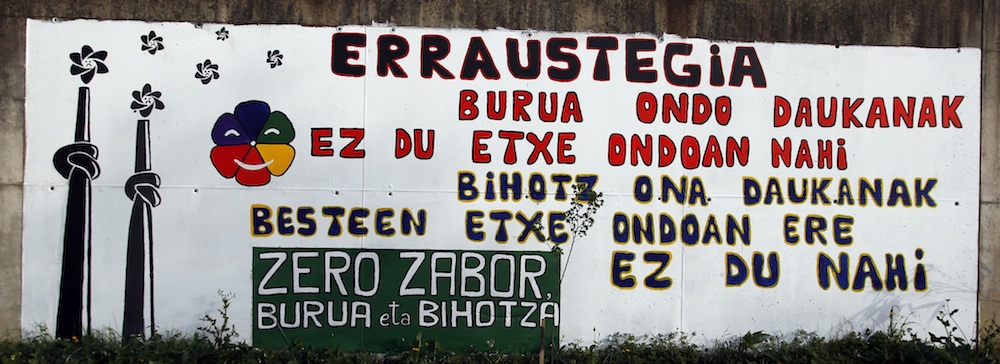 ERRAUSTEGiA
BURUA ONDO DAUKANAK
EZ DU ETXE ONDOAN NAHi
BiHOTZ ONA DAUKANAK
BESTEEN ETXE ONDOAN ERE
EZ DU NAHi
ZERO ZABOR,
BURUA eta BIHOTZA